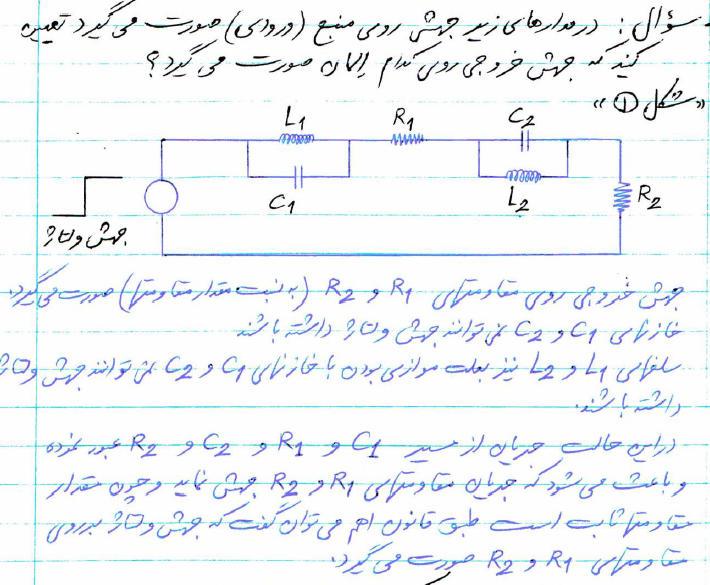 سؤال: در مدارهای زیر جهش روی منبع (ورودی) صورت می گیرد تعیین
کنید که جهش خروجی روی کدام المان صورت می گیرد؟
«شکل ①»
L1 R1 C2
C1 L2 R2
جهش ولتاژ
جهش خروجی روی مقاومتهای R1 و R2 (به نسبت مقدار مقاومتها) صورت می گیرد.
خازنهای C1 و C2 نمی توانند جهش ولتاژ داشته باشند
سلفهای L1 و L2 نیز بعلت موازی بودن با خازنهای C1 و C2 نمی توانند جهش ولتاژ
داشته باشند.
در این حالت جریان از مسیر C1 و R1 و C2 و R2 عبور نموده
و باعث می شود که جریان مقاومتهای R1 و R2 جهش نماید و چون مقدار
مقاومتها ثابت است طبق قانون اهم می توان گفت که جهش ولتاژ بر روی
مقاومتهای R1 و R2 صورت می گیرد.